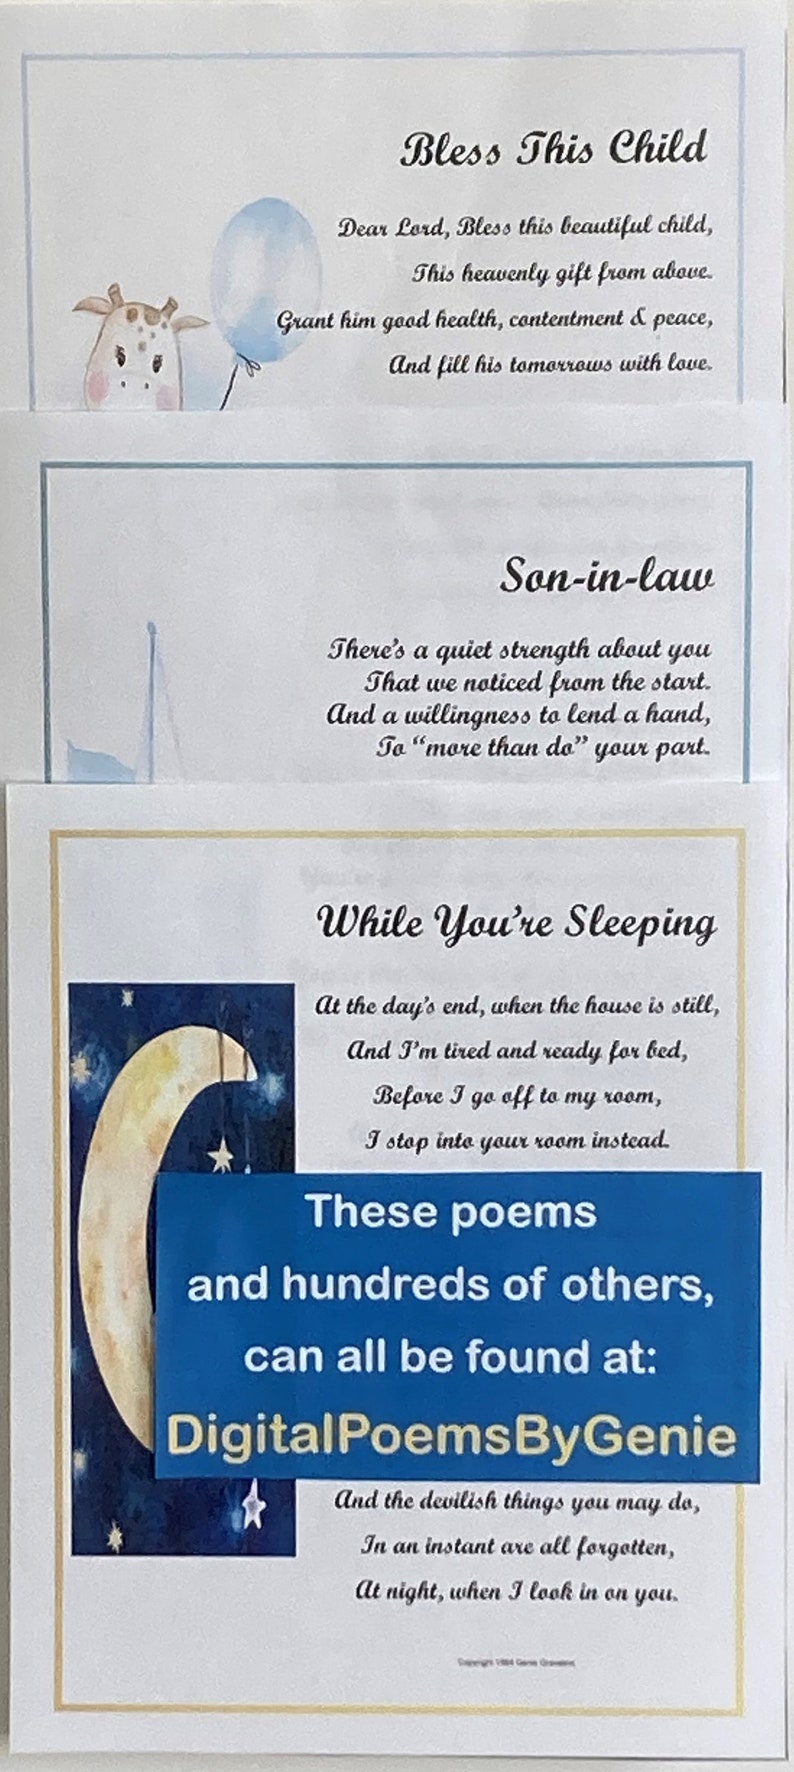 Bless This Child
Dear Lord, Bless this beautiful child,
This heavenly gift from above.
Grant him good health, contentment & peace,
And fill his tomorrows with love.
Son-in-law
There's a quiet strength about you
That we noticed from the start.
And a willingness to lend a hand,
To “more than do” your part.
While You're Sleeping
At the day's end, when the house is still,
And I'm tired and ready for bed,
Before I go off to my room,
I stop into your room instead.
These poems
and hundreds of others,
can all be found at:
DigitalPoemsByGenie
And the devilish things you may do,
In an instant are all forgotten,
At night, when I look in on you.
Copyright Genie